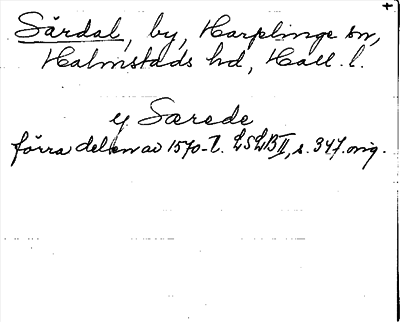 Särdal, by, Harplinge sn,
Halmstads hd, Hall. l.
y Særede
förra delen av 1570-t. LSLB II, s. 347. orig.